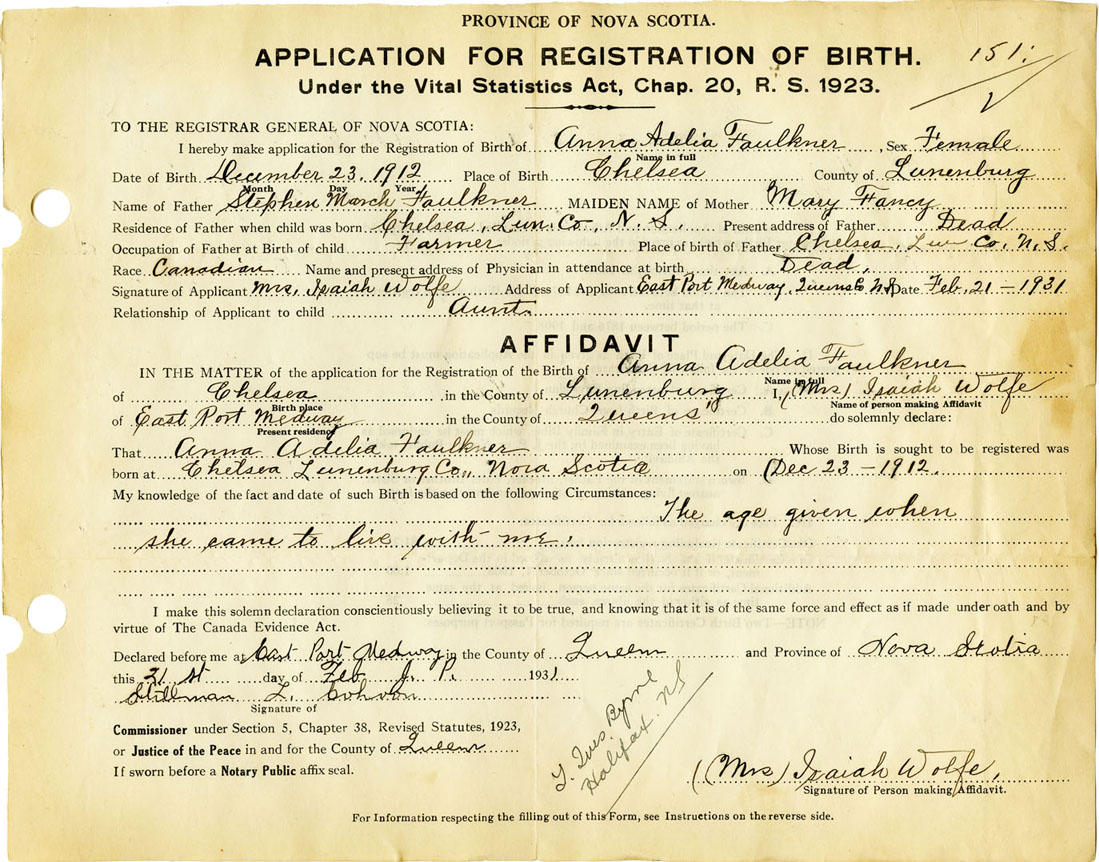 PROVINCE OF NOVA SCOTIA.
APPLICATION FOR REGISTRATION OF BIRTH.
151.
Under the Vital Statistics Act, Chap. 20, R. S. 1923.
TO THE REGISTRAR GENERAL OF NOVA SCOTIA:
I hereby make application for the Registration of Birth of Anna Adelia Faulkner, Sex Female
Name in full
Date of Birth December 23, 1912 Place of Birth Chelsea County of Lunenburg
Month Day Year
Name of Father Stephen March Faulkner MAIDEN NAME of Mother Mary Fancy
Residence of Father when child was born Chelsea, Lun. Co, N. S. Present address of Father Dead
Occupation of Father at Birth of child Farmer Place of birth of Father Chelsea, Lun Co, N. S.
Race Canadian Name and present address of Physician in attendance at birth Dead,
Signature of Applicant Mrs, Isaiah Wolfe Address of Applicant East Port Medway, Queens Co NS Date Feb, 21 - 1931
Relationship of Applicant to child Aunt.
AFFIDAVIT
IN THE MATTER of the application for the Registration of the Birth of Anna Adelia Faulkner
Name in full
of Chelsea in the County of Lunenburg I, (Mrs) Isaiah Wolfe
Birth place Name of person making Affidavit
of East Port Medway in the County of Queens" do solemnly declare:
Present residence
That Anna Adelia Faulkner Whose Birth is sought to be registered was
born at Chelsea Lunenburg Co., Nova Scotia on Dec 23 - 1912.
My knowledge of the fact and date of such Birth is based on the following Circumstances:
The age given when
she came to live with me.
I make this solemn declaration conscientiously believing it to be true, and knowing that it is of the same force and effect as if made under oath and by
virtue of The Canada Evidence Act.
NOTE—Two Birth Certificates are required for Passport purposes
Declared before me at East Port Medway in the County of Queens and Province of Nova Scotia
this 21 st day of Feb J. P. 1931
Stillman L. Cohoon
Signature of
Commissioner under Section 5, Chapter 38, Revised Statutes, 1923,
or Justice of the Peace in and for the County of Queens
If sworn before a Notary Public affix seal.
Byrne
Halifax. NS
(Mrs) Isaiah Wolfe,
Signature of Person making Affidavit.
For Information respecting the filling out of this Form, see Instructions on the reverse side.